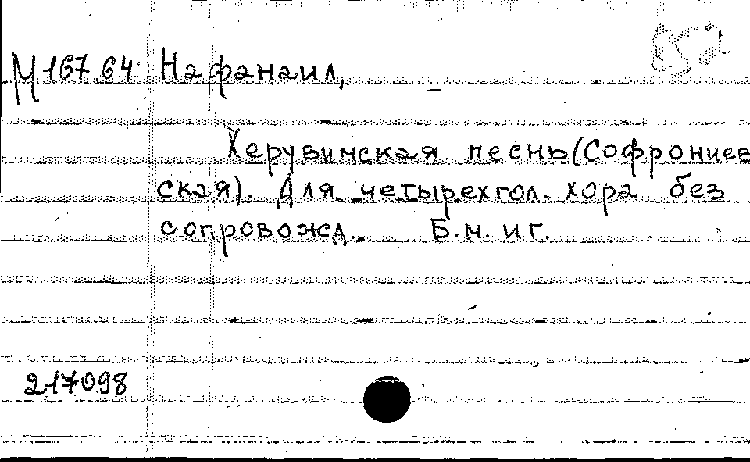 852
М 167 64 Нафанаил,
Херувимская песнь (Софрониев
ская). Для четырехгол. хора без
сопровожд. Б.м. и г.
217098